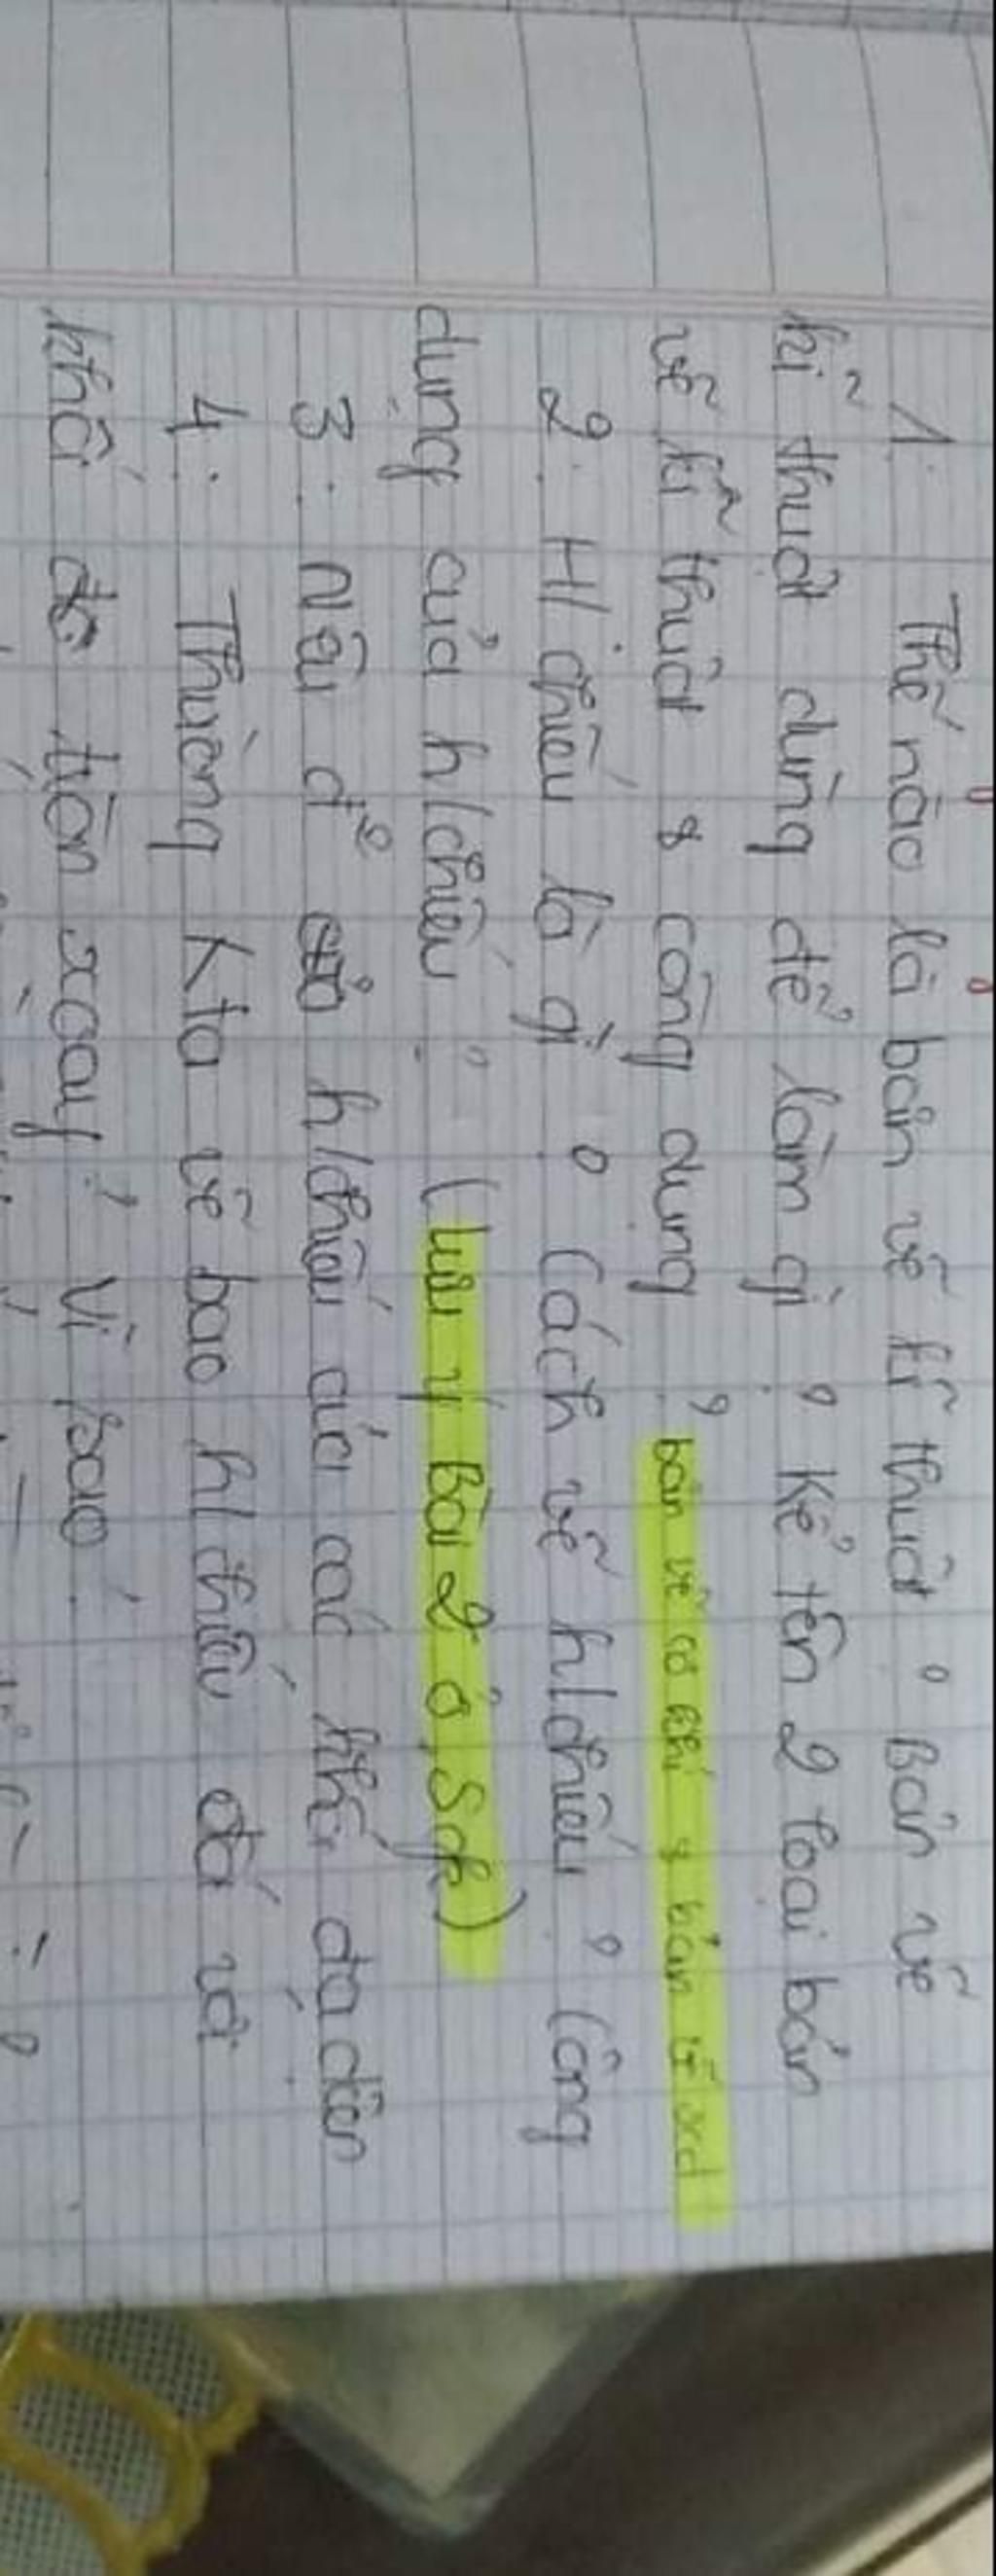 1. Thế nào là bản vẽ kĩ thuật? Bản vẽ
kĩ thuật dùng để làm gì? Kể tên 2 loại bản
vẽ kĩ thuật & công dụng? bản vẽ cơ khí & bản vẽ xd
2. H/chiếu là gì? Cách vẽ h/chiếu? Công
dụng của h/chiếu? (lưu ý Bài 2 ở Sgk)
3. Nêu đ² của h/chiếu của các khối đa diện
4: Thường kta vẽ bao h/chiếu đối với
khối tròn xoay? Vì sao?